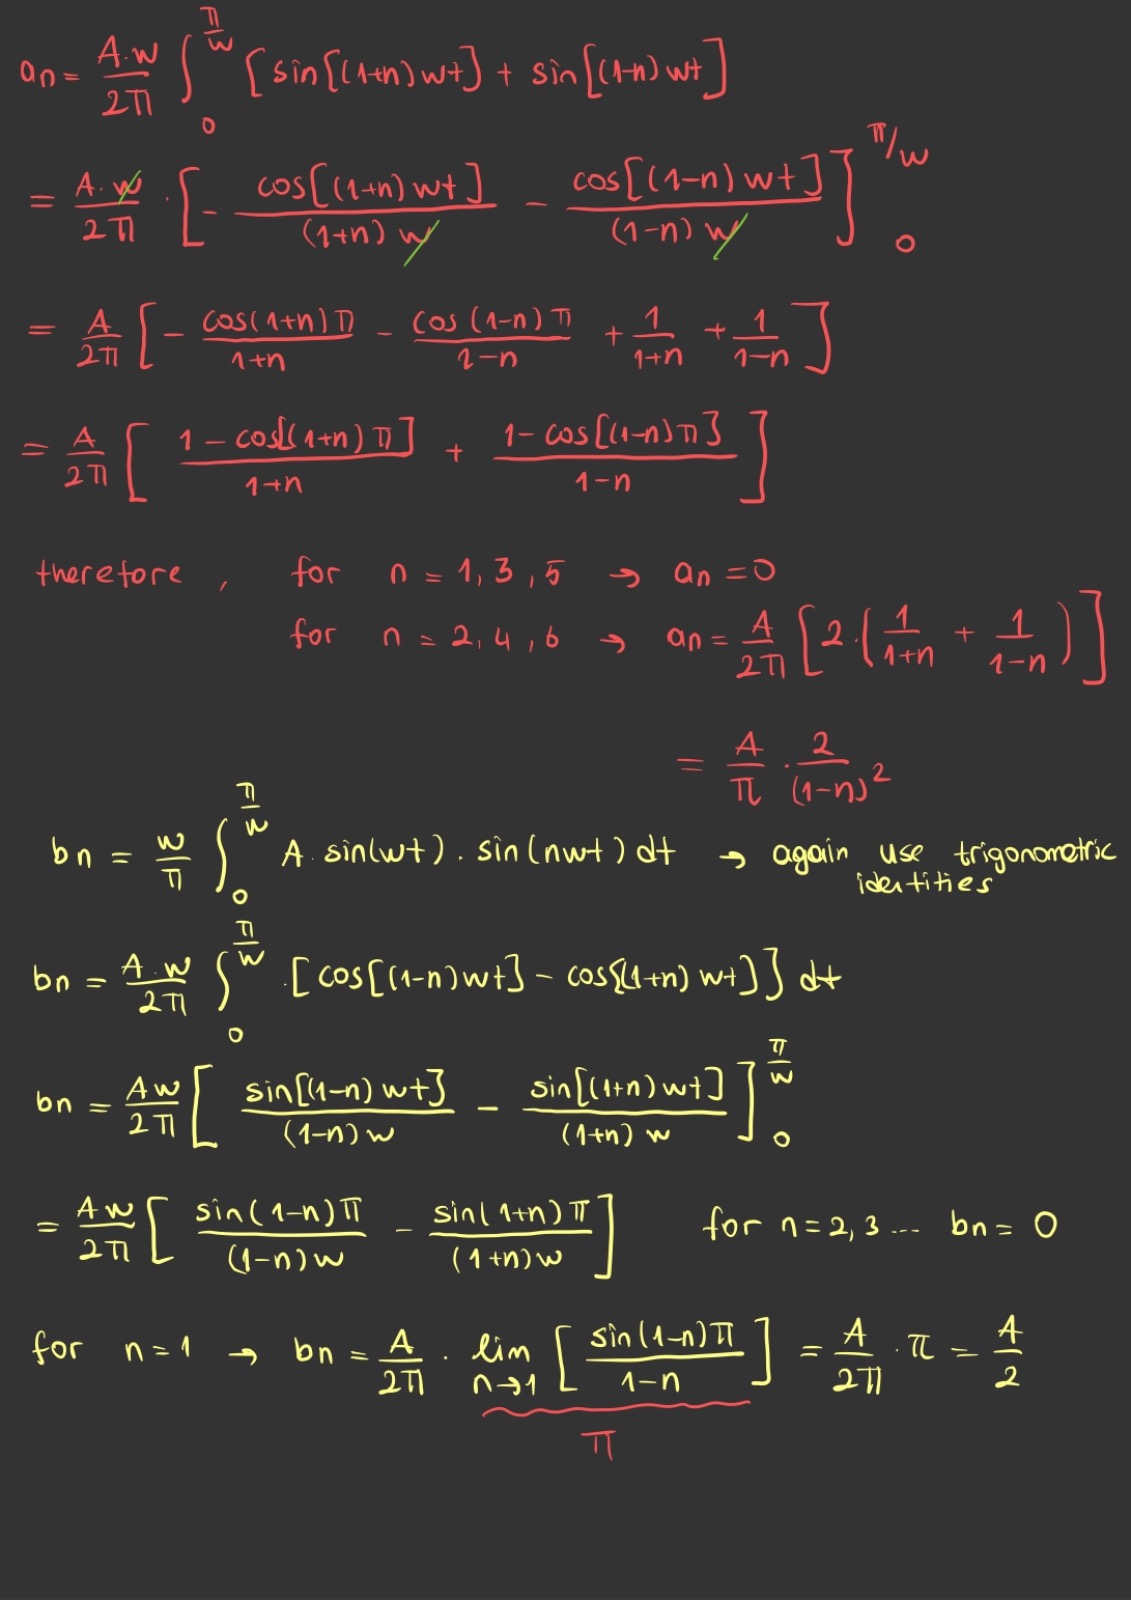 an = A.w/2π ∫₀^(π/w) [sin[(1+n)wt] + sin[(1-n)wt]
= A.w/2π . [- cos[(1+n)wt]/(1+n)w - cos[(1-n)wt]/(1-n)w]₀^(π/w)
= A/2π [- cos(1+n)π/1+n - cos(1-n)π/1-n + 1/1+n + 1/1-n]
= A/2π [1-cos[(1+n)π]/1+n + 1-cos[(1-n)π]/1-n]
therefore, for n = 1,3,5 → an = 0
for n = 2,4,6 → an = A/2π [2.(1/1+n + 1/1-n)]
= A/π . 2/(1-n)²
bn = w/π ∫₀^(π/w) A.sin(wt).sin(nwt)dt → again use trigonometric
identities
bn = A.w/2π ∫₀^(π/w) .[cos[(1-n)wt] - cos[(1+n)wt]] dt
bn = Aw/2π [sin[(1-n)wt]/(1-n)w - sin[(1+n)wt]/(1+n)w]₀^(π/w)
= Aw/2π [sin(1-n)π/(1-n)w - sin(1+n)π/(1+n)w] for n=2,3... bn = 0
for n=1 → bn = A/2π . lim n→1 [sin(1-n)π/1-n] = A/2π . π = A/2
π